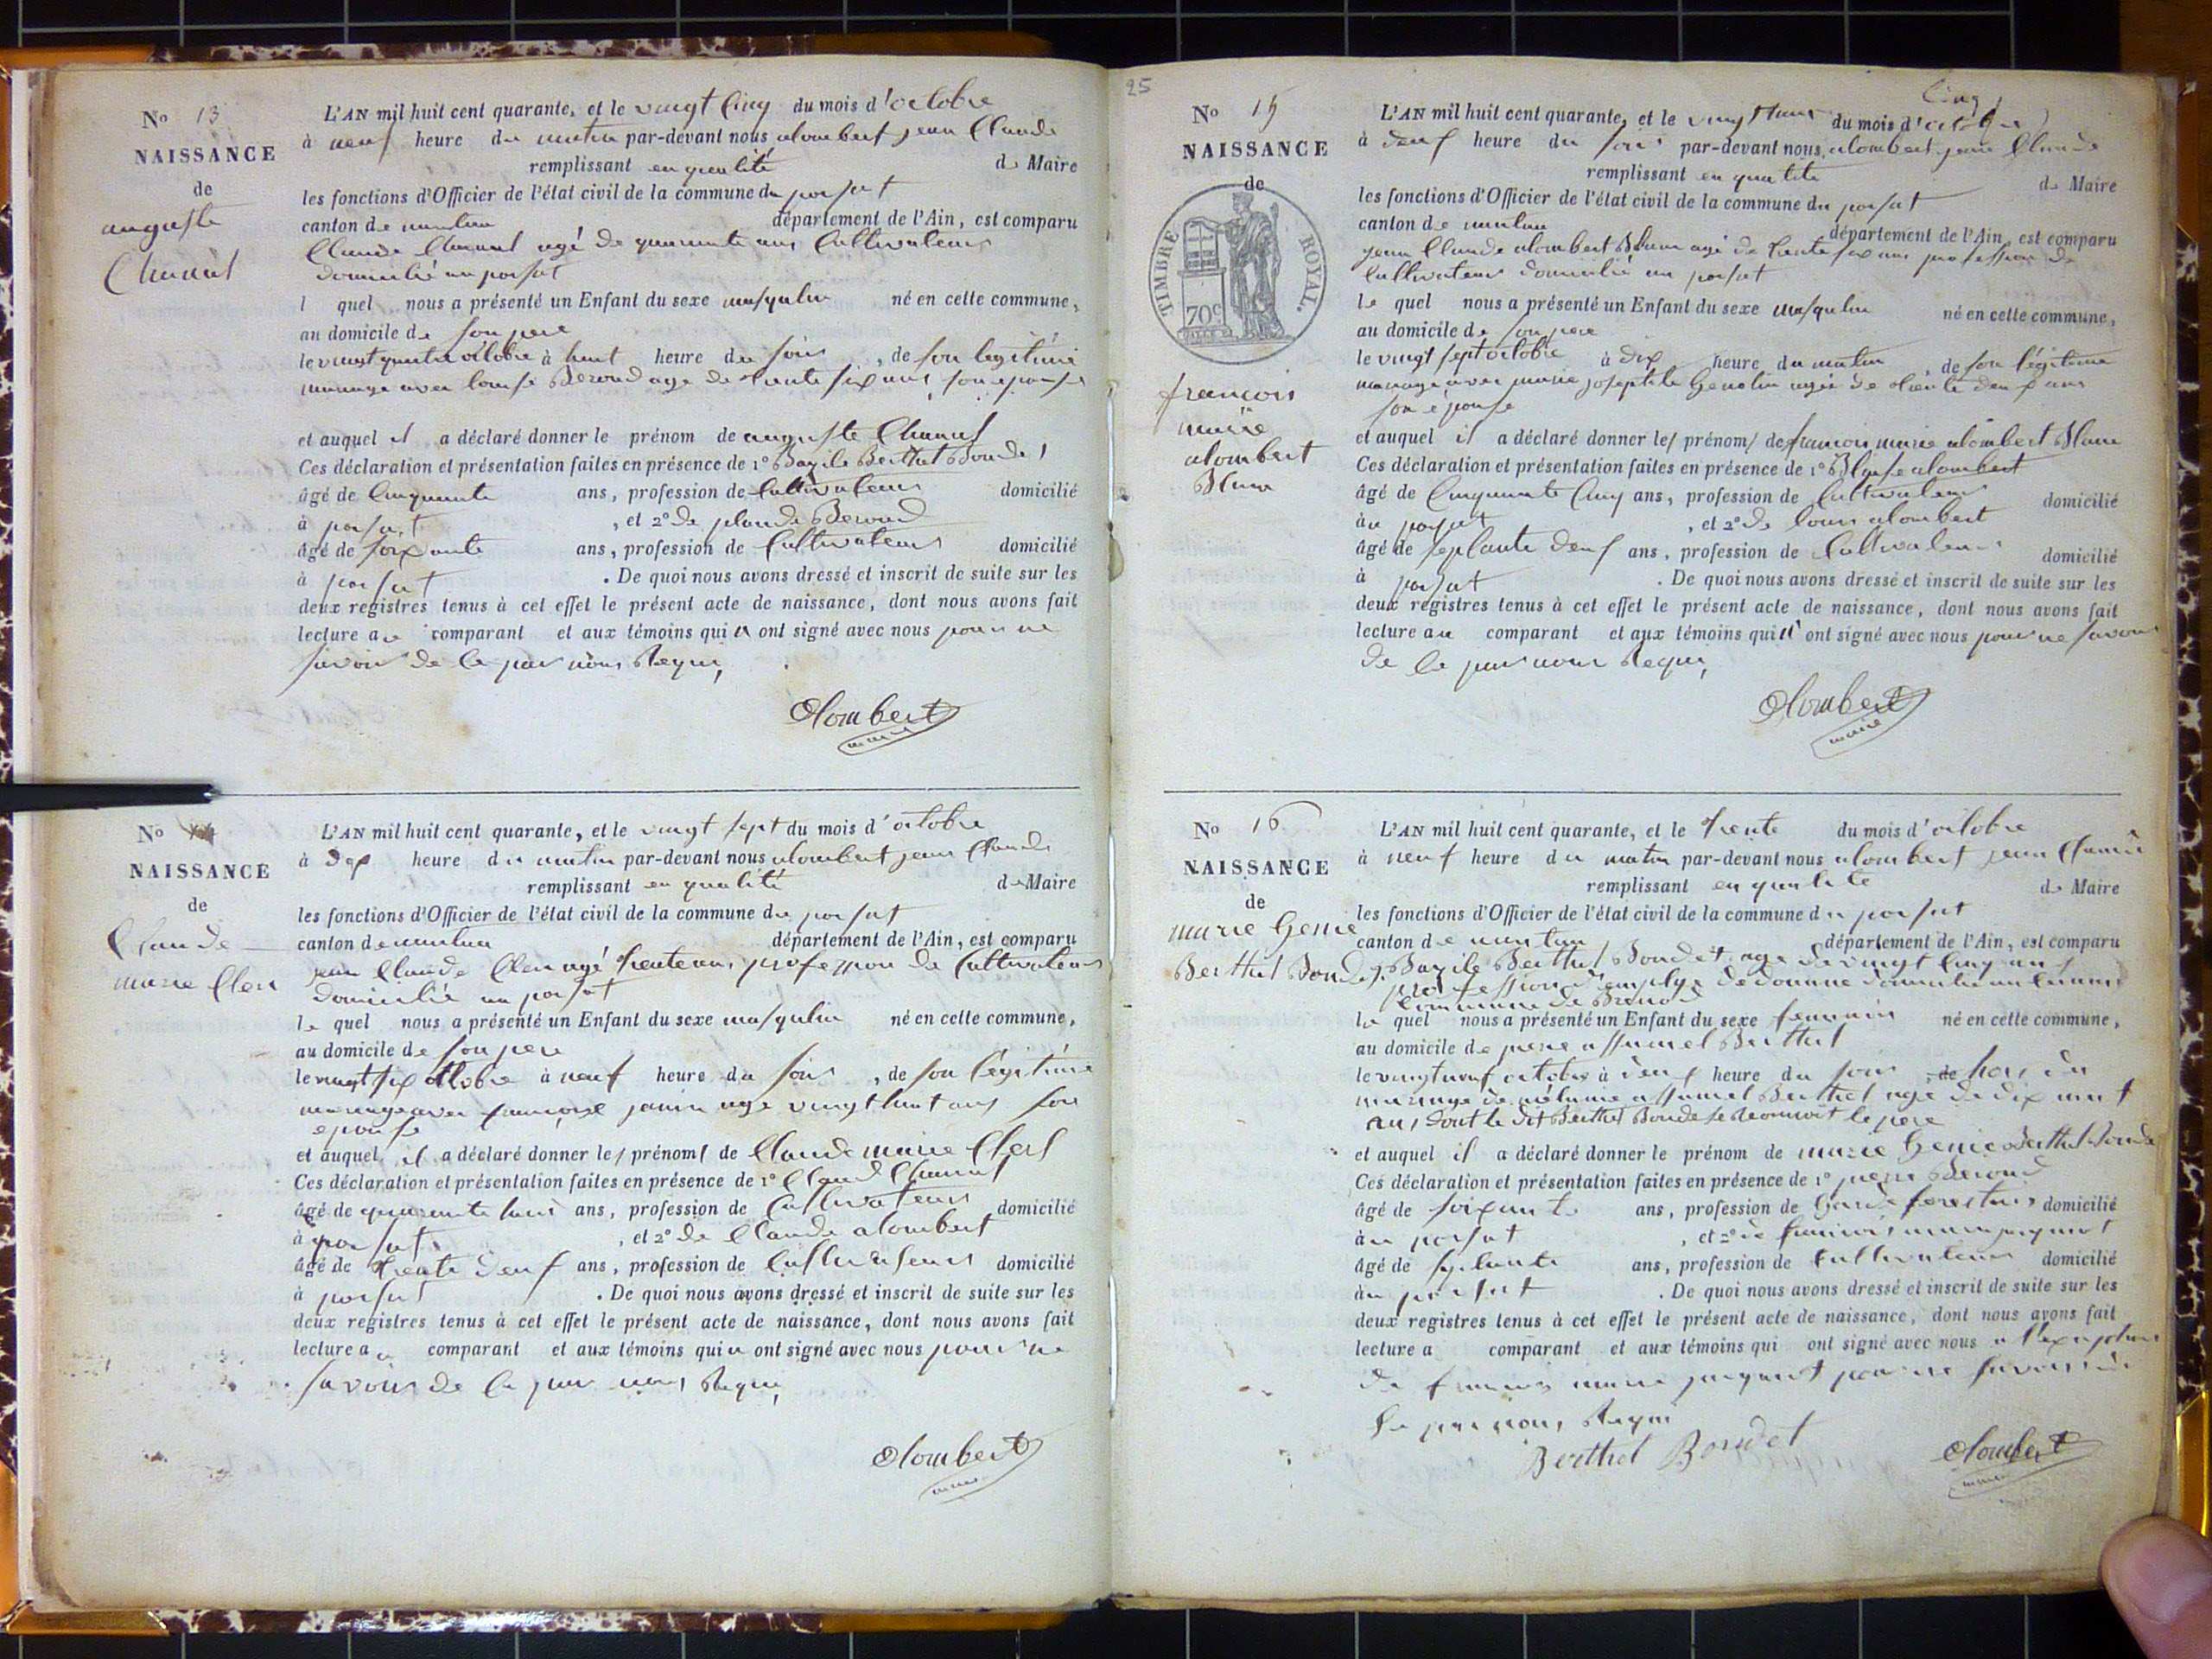 No 13
NAISSANCE
de
auguste
L'AN mil huit cent quarante, et le vingt Cinq du mois d'octobre
à neuf heure du matin par-devant nous alombert jean Claude
remplissant en qualité de Maire
les fonctions d'Officier de l'état civil de la commune du poisat
canton de nantua département de l'Ain, est comparu
Claude agé de quarante ans Cultivateur
domicilié au poisat
l quel nous a présenté un Enfant du sexe masqulin né en cette commune,
au domicile de son pere
le vingt quatre octobre à huit heure du soir, de son legitime
mariage avec louise Beroud age de trente six ans son epouse
et auquel il a déclaré donner le prénom de auguste
Ces déclaration et présentation faites en présence de 1° Bazile Berthet Bondet
âgé de Cinquante ans, profession de Cultivateur domicilié
à poisat, et 2° de Beroud
âgé de soixante ans, profession de Cultivateur domicilié
à poisat. De quoi nous avons dressé et inscrit de suite sur les
deux registres tenus à cet effet le présent acte de naissance, dont nous avons fait
lecture au comparant et aux témoins qui n ont signé avec nous pour ne
savoir de ce par nous Requi
alombert
maire
No
NAISSANCE
de
Claude
marie Clerc
L'AN mil huit cent quarante, et le vingt sept du mois d'octobre
à dix heure du matin par-devant nous alombert jean Claude
remplissant en qualité de Maire
les fonctions d'Officier de l'état civil de la commune du poisat
canton de nantua département de l'Ain, est comparu
jean Claude Clerc agé trente ans, profession de Cultivateur
domicilié au poisat
le quel nous a présenté un Enfant du sexe masqulin né en cette commune,
au domicile de son pere
le vingt six octobre à neuf heure du soir, de son légitime
mariage avec françoise janin age vingt huit ans son
epouse
et auquel il a déclaré donner les prénoms de Claude marie Clerc
Ces déclaration et présentation faites en présence de 1° Claude
âgé de quarante ans, profession de Cultivateur domicilié
à poisat, et 2° de Claude alombert
âgé de trente deux ans, profession de Cultivateur domicilié
à poisat. De quoi nous avons dressé et inscrit de suite sur les
deux registres tenus à cet effet le présent acte de naissance, dont nous avons fait
lecture au comparant et aux témoins qui n ont signé avec nous pour ne
savoir de ce par nous Requi
alombert
maire
25
No 15
NAISSANCE
de
TIMBRE ROYAL.
70c
françois
marie
alombert
Blanc
L'AN mil huit cent quarante, et le vingt du mois d'octobre
à deux heure du soir par-devant nous alombert jean Claude
remplissant en qualité de Maire
les fonctions d'Officier de l'état civil de la commune du poisat
canton de nantua département de l'Ain, est comparu
jean Claude alombert Blanc agé de trente six ans profession de
Cultivateur domicilié au poisat
le quel nous a présenté un Enfant du sexe masqulin né en cette commune,
au domicile de son pere
le vingt sept octobre à dix heure du matin, de son légitime
mariage avec marie josephte agée de trente deux ans
son épouse
et auquel il a déclaré donner les prénoms de francois marie alombert Blanc
Ces déclaration et présentation faites en présence de 1° Blaise alombert
âgé de Cinquante Cinq ans, profession de Cultivateur domicilié
au poisat, et 2° de louis alombert
âgé de septante deux ans, profession de Cultivateur domicilié
à poisat. De quoi nous avons dressé et inscrit de suite sur les
deux registres tenus à cet effet le présent acte de naissance, dont nous avons fait
lecture au comparant et aux témoins qui n' ont signé avec nous pour ne savoir
de ce par nous Requi
alombert
maire
No 16
NAISSANCE
de
marie Genie
Berthet Bondet
L'AN mil huit cent quarante, et le trente du mois d'octobre
à neuf heure du matin par-devant nous alombert jean Claude
remplissant en qualité de Maire
les fonctions d'Officier de l'état civil de la commune du poisat
canton de nantua département de l'Ain, est comparu
Bazile Berthet Bondet age de vingt Cinq ans
profession d'employé de douane domicilié au
commune de Brenod
le quel nous a présenté un Enfant du sexe feminin né en cette commune,
au domicile de pierre assumel Berthet
le vingt neuf octobre à deux heure du soir, de hors du
mariage de melanie assumel Berthet agé de dix
ans dont le dit Berthet Bondet se reconnoit le pere
et auquel il a déclaré donner le prénom de marie Genie Berthet Bondet
Ces déclaration et présentation faites en présence de 1° pierre Beroud
âgé de soixante ans, profession de Garde forestier domicilié
au poisat, et 2° de francois marie
âgé de septante ans, profession de Cultivateur domicilié
au poisat. De quoi nous avons dressé et inscrit de suite sur les
deux registres tenus à cet effet le présent acte de naissance, dont nous avons fait
lecture a comparant et aux témoins qui ont signé avec nous a l'exeption
de francois marie pour ne savoir de
Ce par nous Requi
Berthet Bondet
alombert
maire